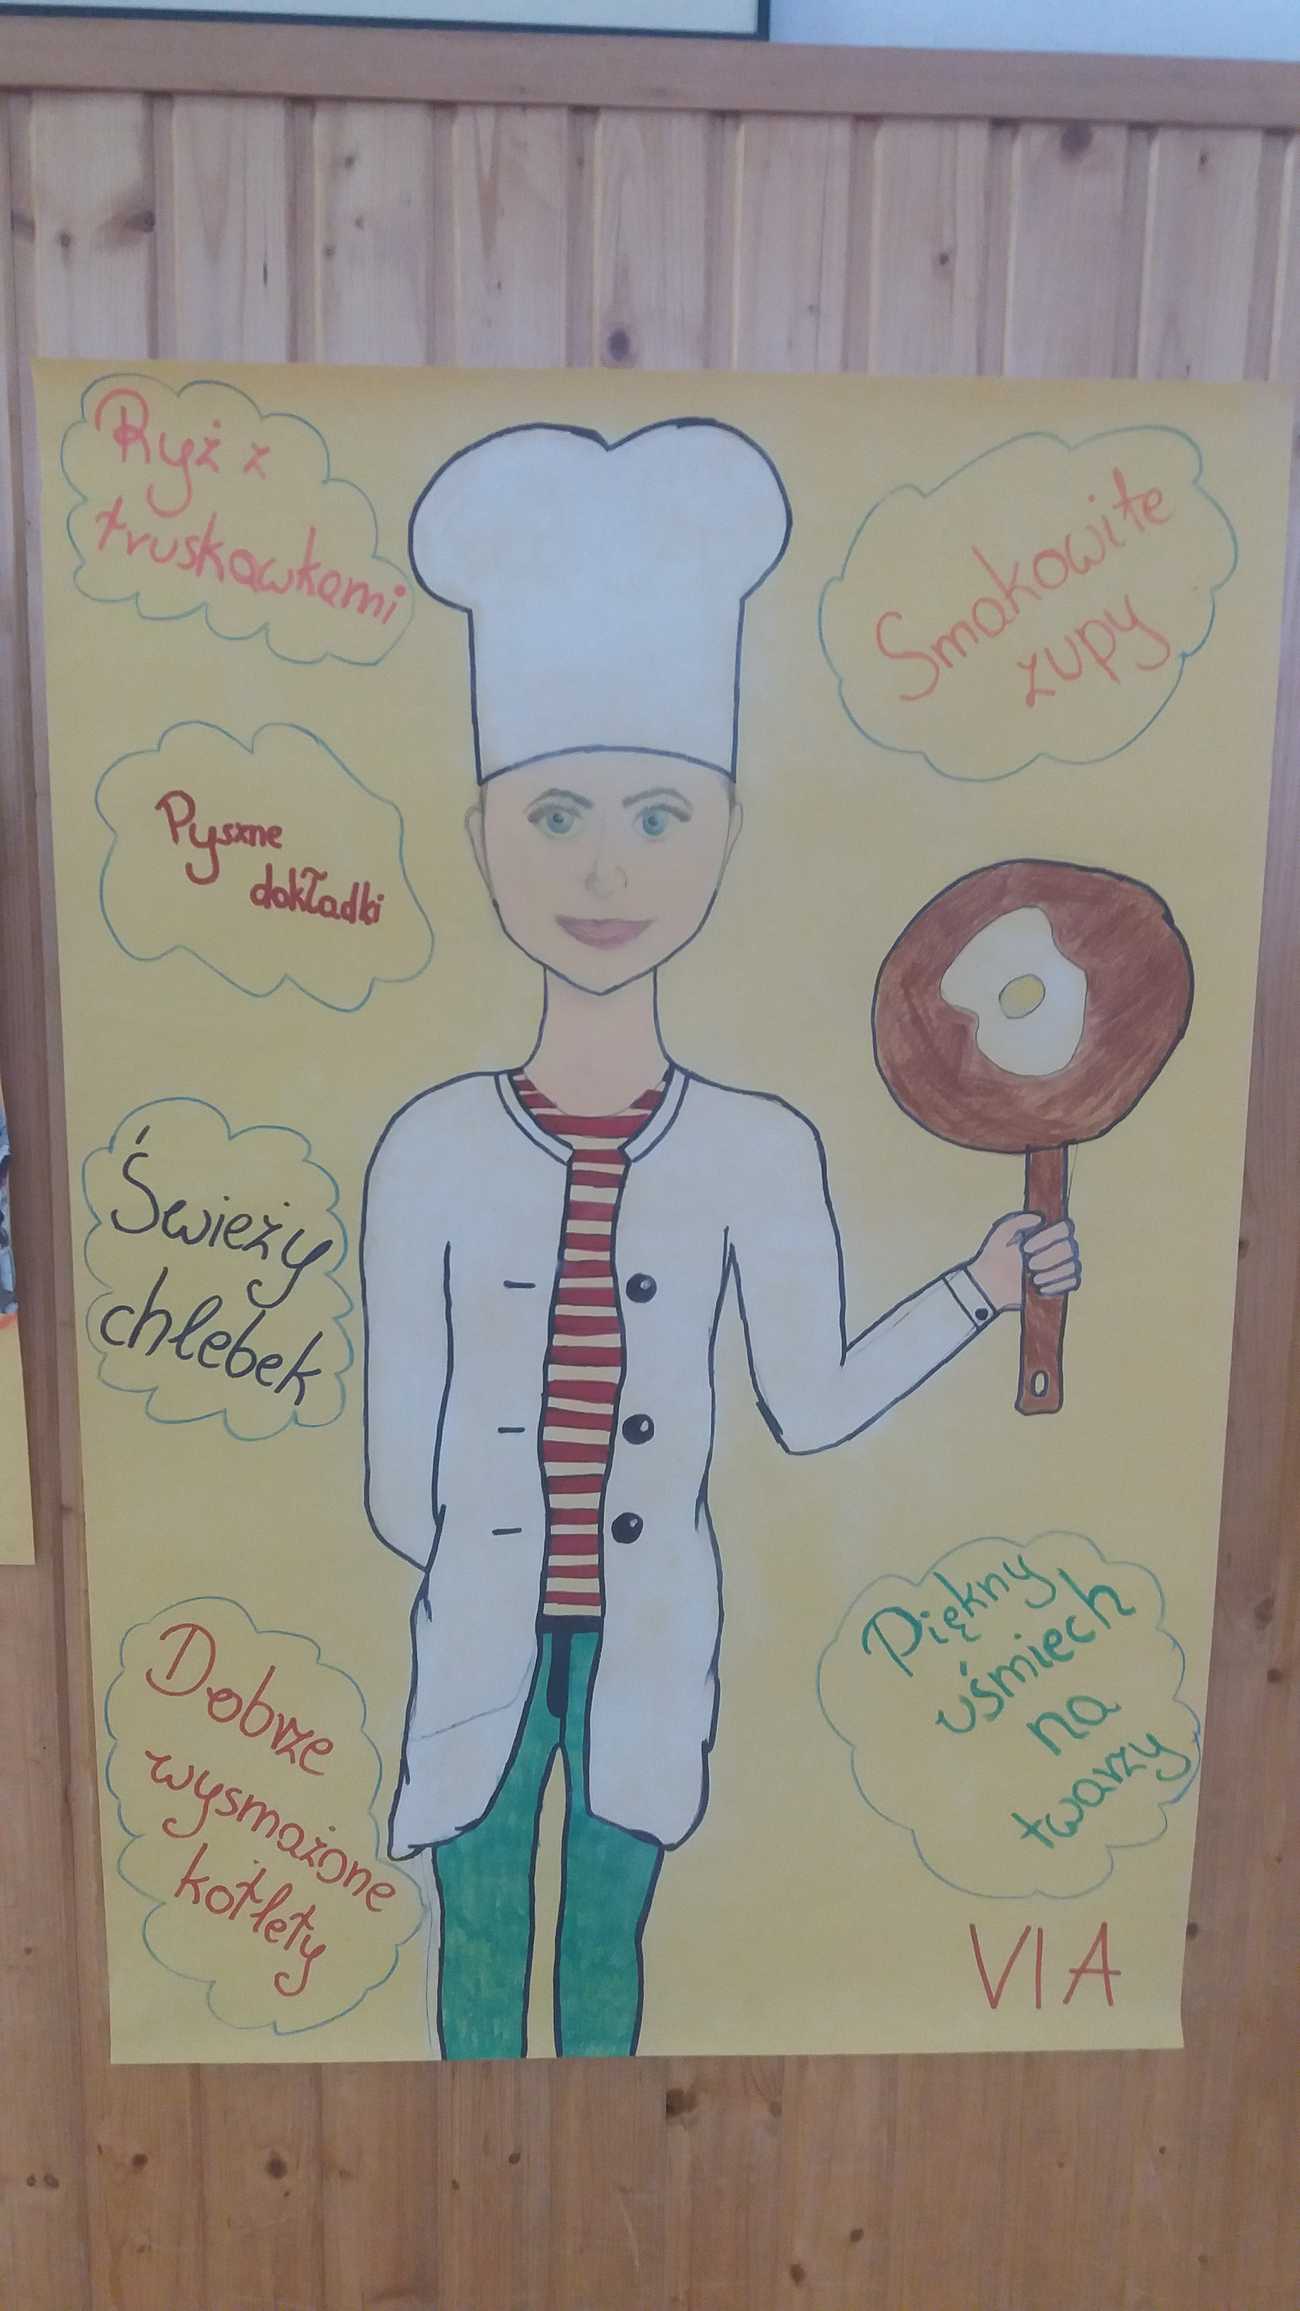 Ryż z
truskawkami
Smakowite
zupy
Pyszne
dokładki
Świeży
chlebek
Dobrze
wysmażone
kotlety
Piękny
uśmiech
na
twarzy
VIA